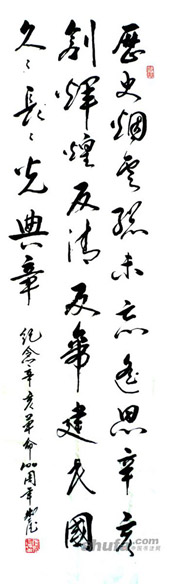 歷史烟雲總未忘遥思辛亥
創輝煌反清反帝建民國
久々長々光典章
纪念辛亥革命100周年
shufa.com